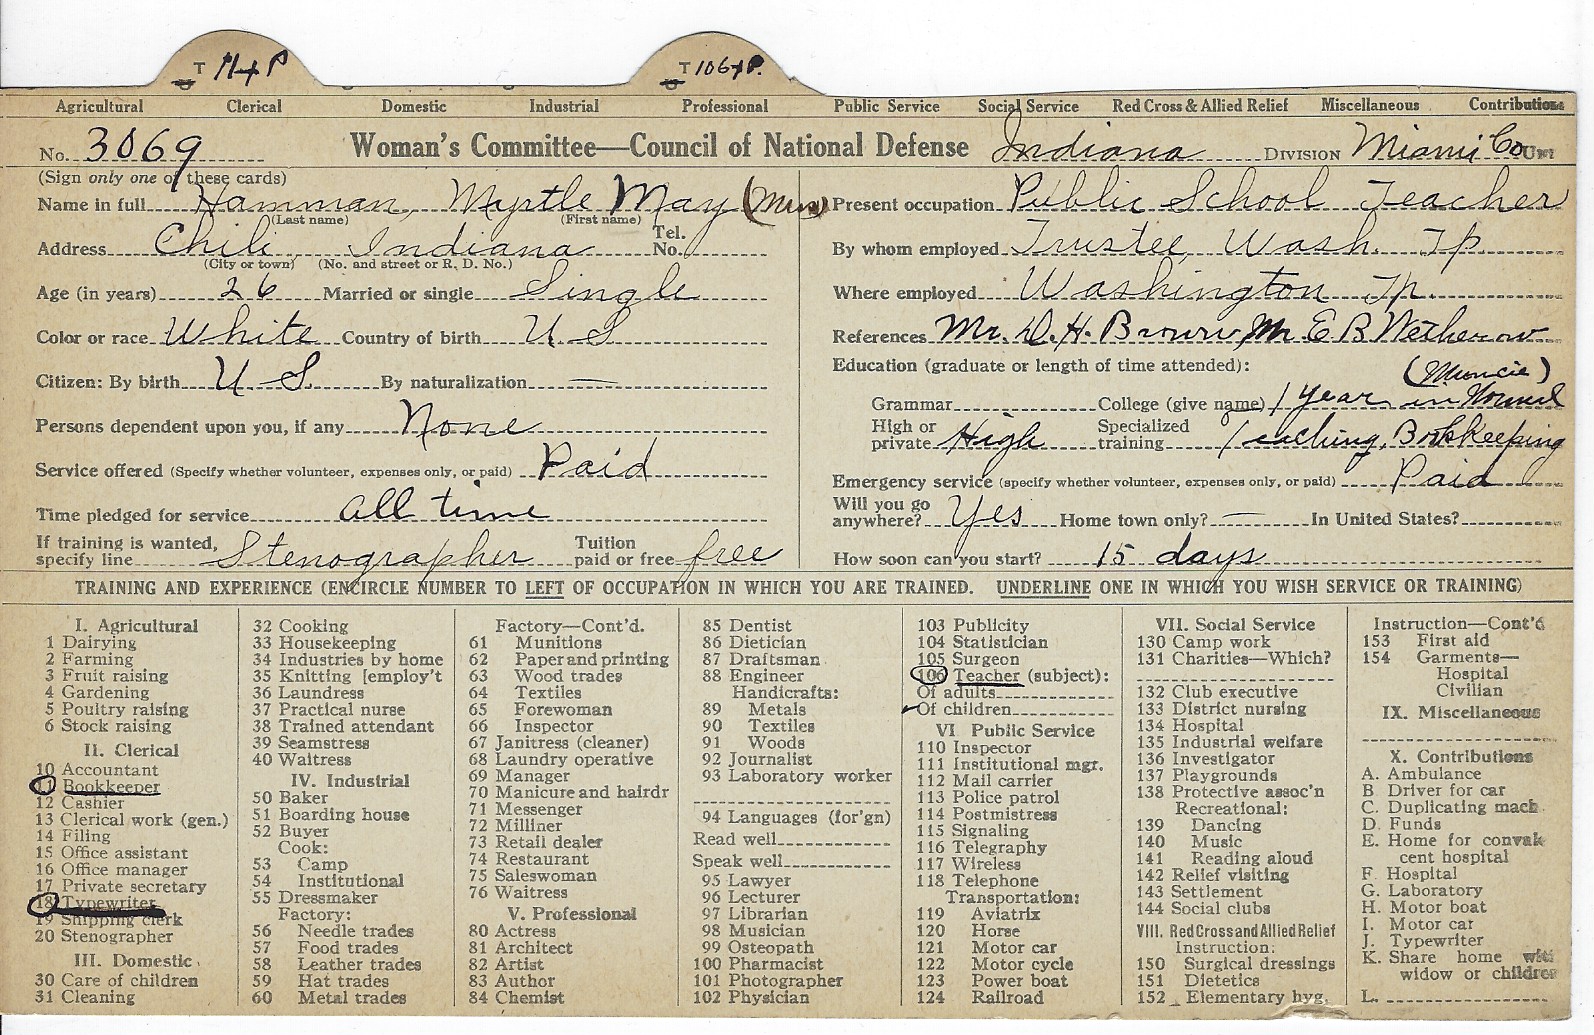 T 11+P T 106+P.
Agricultural Clerical Domestic Industrial Professional Public Service Social Service Red Cross & Allied Relief Miscellaneous Contributions
No. 3069 Woman's Committee—Council of National Defense Indiana DIVISION Miami Co. Unit
(Sign only one of these cards)
Name in full Hamman, Myrtle May (Miss)
(Last name) (First name)
Address Chili, Indiana Tel. No.
(City or town) (No. and street or R. D. No.)
Age (in years) 26 Married or single Single
Color or race White Country of birth U S
Citizen: By birth U. S. By naturalization —
Persons dependent upon you, if any None
Service offered (Specify whether volunteer, expenses only, or paid) Paid
Time pledged for service all time
If training is wanted, specify line Stenographer Tuition paid or free free
Present occupation Public School Teacher
By whom employed Trustee, Wash. Tp.
Where employed Washington Tp.
References Mr. D. H. Brown, Mr. E B Wetherow
Education (graduate or length of time attended):
(Muncie)
Grammar College (give name) 1 year in Normal
High or private High Specialized training Teaching, Bookkeeping
Emergency service (specify whether volunteer, expenses only, or paid) Paid
Will you go anywhere? Yes Home town only? — In United States?
How soon can you start? 15 days
TRAINING AND EXPERIENCE (ENCIRCLE NUMBER TO LEFT OF OCCUPATION IN WHICH YOU ARE TRAINED. UNDERLINE ONE IN WHICH YOU WISH SERVICE OR TRAINING)
I. Agricultural
1 Dairying
2 Farming
3 Fruit raising
4 Gardening
5 Poultry raising
6 Stock raising
II. Clerical
10 Accountant
11 Bookkeeper
12 Cashier
13 Clerical work (gen.)
14 Filing
15 Office assistant
16 Office manager
17 Private secretary
18 Typewriter
19 Shipping clerk
20 Stenographer
III. Domestic
30 Care of children
31 Cleaning
32 Cooking
33 Housekeeping
34 Industries by home
35 Knitting [employ't
36 Laundress
37 Practical nurse
38 Trained attendant
39 Seamstress
40 Waitress
IV. Industrial
50 Baker
51 Boarding house
52 Buyer
Cook:
53 Camp
54 Institutional
55 Dressmaker
Factory:
56 Needle trades
57 Food trades
58 Leather trades
59 Hat trades
60 Metal trades
Factory—Cont'd.
61 Munitions
62 Paper and printing
63 Wood trades
64 Textiles
65 Forewoman
66 Inspector
67 Janitress (cleaner)
68 Laundry operative
69 Manager
70 Manicure and hairdr
71 Messenger
72 Milliner
73 Retail dealer
74 Restaurant
75 Saleswoman
76 Waitress
V. Professional
80 Actress
81 Architect
82 Artist
83 Author
84 Chemist
85 Dentist
86 Dietician
87 Draftsman
88 Engineer
Handicrafts:
89 Metals
90 Textiles
91 Woods
92 Journalist
93 Laboratory worker
94 Languages (for'gn)
Read well
Speak well
95 Lawyer
96 Lecturer
97 Librarian
98 Musician
99 Osteopath
100 Pharmacist
101 Photographer
102 Physician
103 Publicity
104 Statistician
105 Surgeon
106 Teacher (subject):
Of adults
✓Of children
VI Public Service
110 Inspector
111 Institutional mgr.
112 Mail carrier
113 Police patrol
114 Postmistress
115 Signaling
116 Telegraphy
117 Wireless
118 Telephone
Transportation:
119 Aviatrix
120 Horse
121 Motor car
122 Motor cycle
123 Power boat
124 Railroad
VII. Social Service
130 Camp work
131 Charities—Which?
132 Club executive
133 District nursing
134 Hospital
135 Industrial welfare
136 Investigator
137 Playgrounds
138 Protective assoc'n
Recreational:
139 Dancing
140 Music
141 Reading aloud
142 Relief visiting
143 Settlement
144 Social clubs
VIII. Red Cross and Allied Relief
Instruction:
150 Surgical dressings
151 Dietetics
152 Elementary hyg.
Instruction—Cont'd
153 First aid
154 Garments—
Hospital
Civilian
IX. Miscellaneous
X. Contributions
A. Ambulance
B Driver for car
C. Duplicating mach
D. Funds
E. Home for convales
cent hospital
F. Hospital
G. Laboratory
H. Motor boat
I. Motor car
J. Typewriter
K. Share home with
widow or children
L.